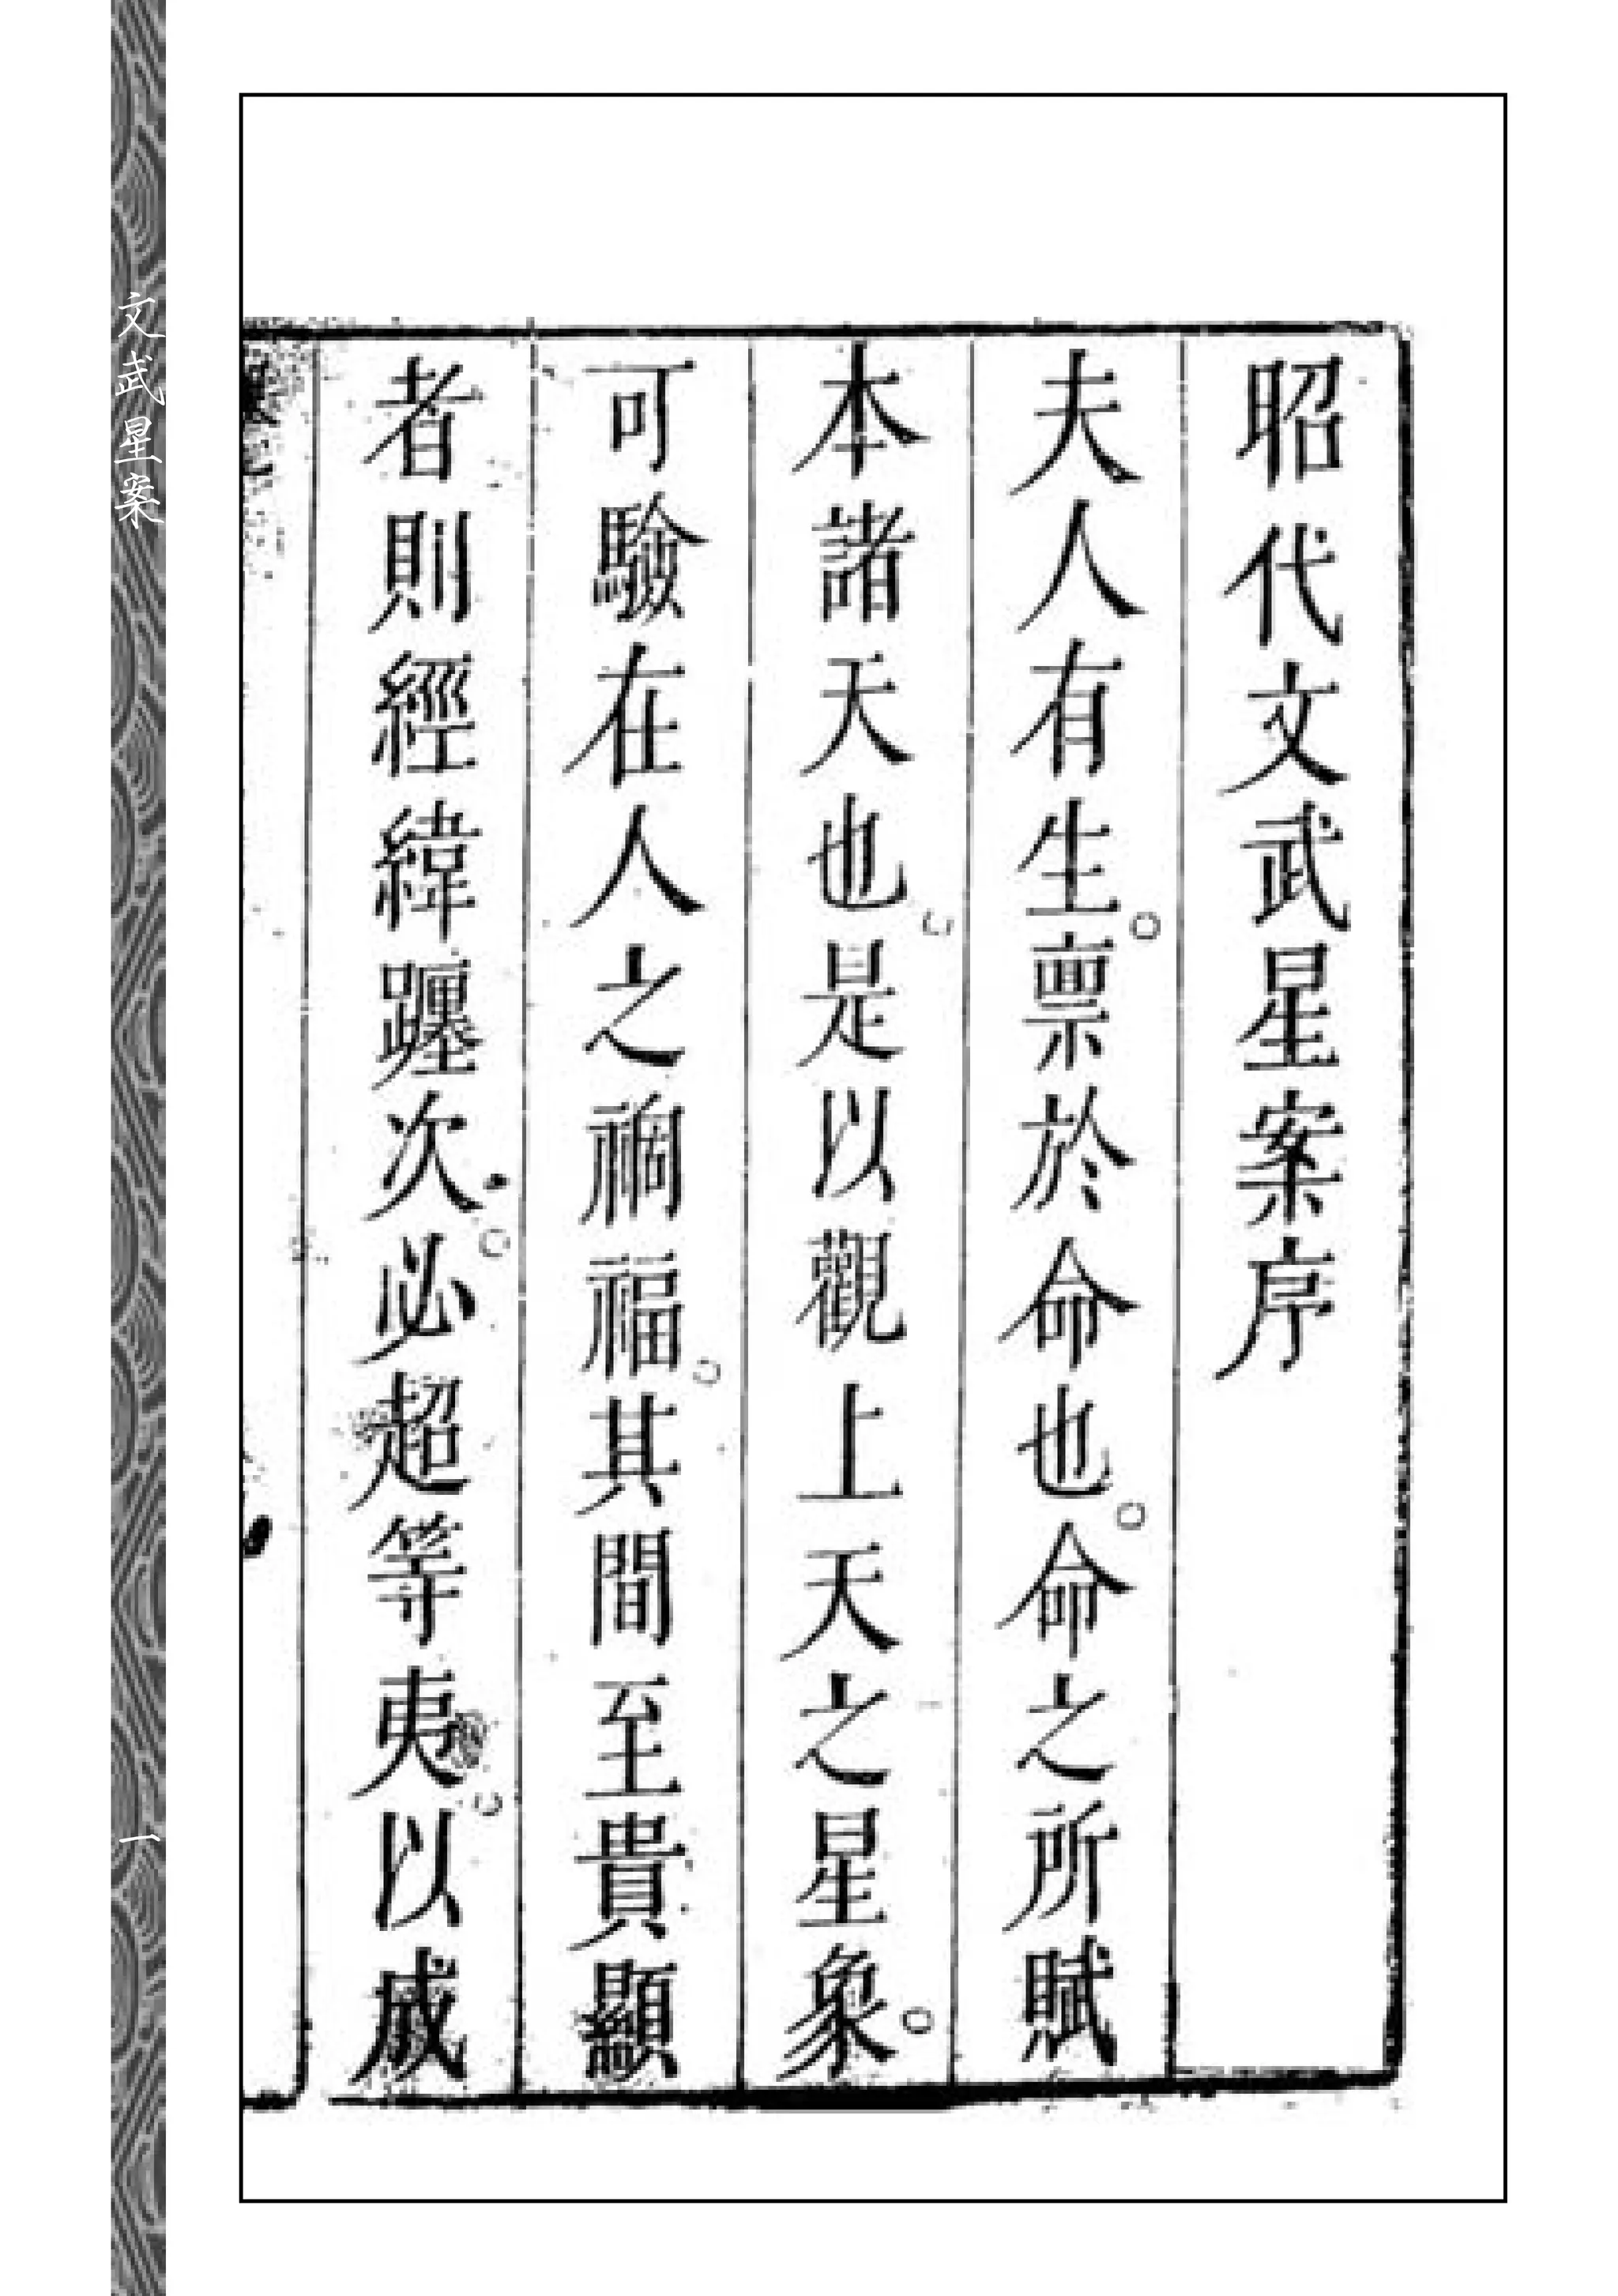 昭代文武星案序
夫人有生。禀於命也。命之所賦
本諸天也。是以觀上天之星象。
可驗在人之禍福。其間至貴顯
者則經緯躔次。必超等夷。以
文武星案
一